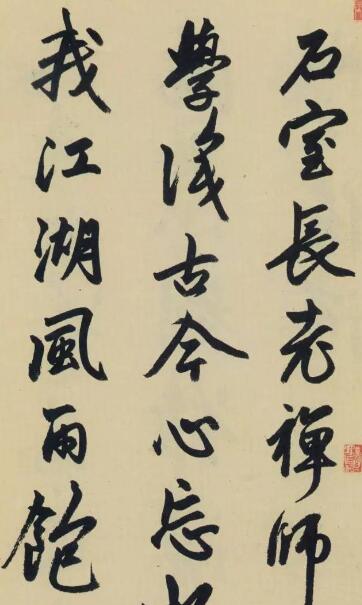 石室長老禪師
學識古今心忘
我江湖風雨飽